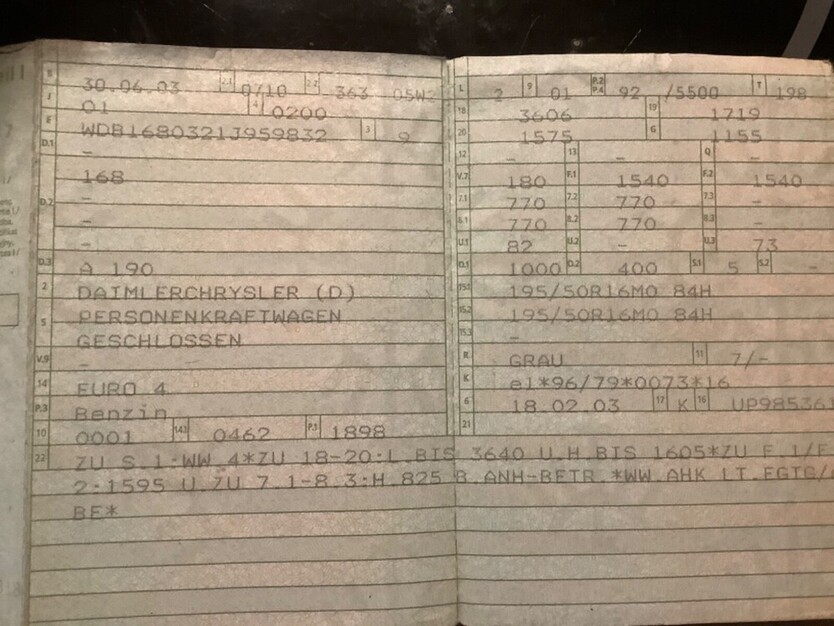 B 30.06.03 2.1 0710 2.2 363 05W
J 01 4 0200
E WDB1680321J959832 3 9
D.1 -
168
D.2 -
-
-
D.3 A 190
2 DAIMLERCHRYSLER (D)
5 PERSONENKRAFTWAGEN
GESCHLOSSEN
V.9 -
14 EURO 4
P.3 Benzin
10 0001 14.1 0462 P.1 1898
L 2 9 01 P.2 P.4 92 /5500 T 198
18 3606 19 1719
20 1575 G 1155
12 - 13 - Q -
V.7 180 F.1 1540 F.2 1540
7.1 770 7.2 770 7.3 -
8.1 770 8.2 770 8.3 -
U.1 82 U.2 - U.3 73
O.1 1000 O.2 400 S.1 5 S.2 -
15.1 195/50R16MO 84H
15.2 195/50R16MO 84H
15.3 -
R GRAU 11 7/-
K e1*96/79*0073*16
6 18.02.03 17 K 16 UP985361
21
22 ZU S.1:WW.4*ZU 18-20:L.BIS 3640 U.H.BIS 1605*ZU F.1/F.
2:1595 U.ZU 7.1-8.3:H.825 B.ANH-BETR.*WW.AHK LT.EGTG/
BE*